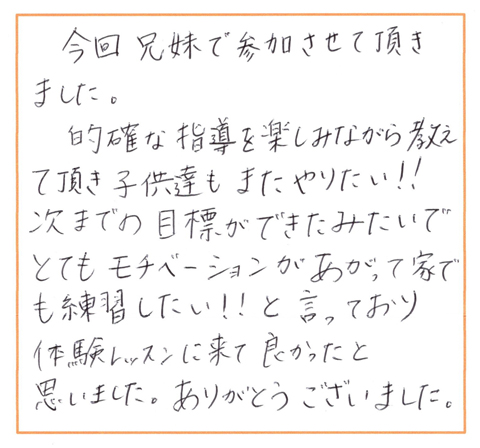 今回 兄妹で参加させて頂き
ました。
的確な指導を楽しみながら教え
て頂き子供達も またやりたい!!
次までの目標ができたみたいで
とてもモチベーションがあがって家で
も練習したい!!と言っており
体験レッスンに来て良かったと
思いました。ありがとうございました。